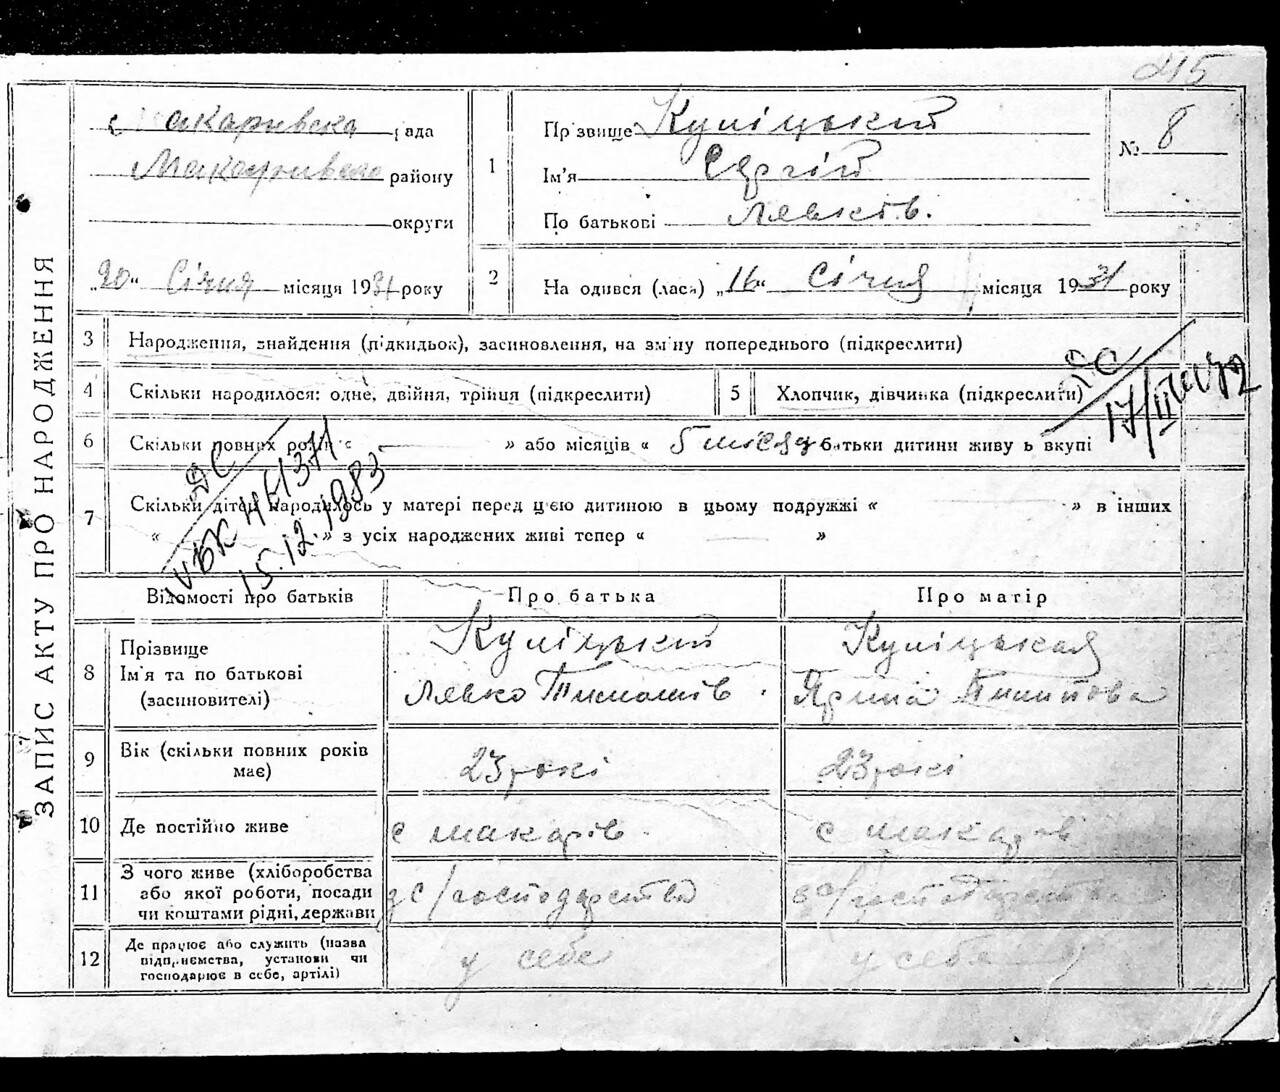 215
ЗАПИС АКТУ ПРО НАРОДЖЕННЯ
с Макарівска рада
Макарівсько району
округи
"20" Січня місяця 1931 року
1
Прізвище Куліцький
Ім'я Сергій
По батькові Левків.
№ 8
2
На одився (лася) "16" Січня місяця 1931 року
3 Народження, знайдення (підкидьок), засиновлення, на зміну попереднього (підкреслити)
4 Скільки народилося: одне, двійня, трійця (підкреслити)
5 Хлопчик, дівчинка (підкреслити)
ДС
17/II
6 Скільки повних років с » або місяців « 5 місяц батьки дитини живу ь вкупі
7 Скільки дітей народилось у матері перед цією дитиною в цьому подружжі « » в інших
« » з усіх народжених живі тепер « »
ДС
15.12.1983
Відомості про батьків
Про батька
Про матір
8 Прізвище
Ім'я та по батькові
(засиновителі)
Куліцький
Левко Тимошів.
Куліцькая
Ярина
9 Вік (скільки повних років
має)
23 рокі
23 рокі
10 Де постійно живе
с Макарів
с Макарів
11 З чого живе (хліборобства
або якої роботи, посади
чи коштами рідні, держави
з с/господарства
з с/господарства
12 Де працює або служить (назва
підприємства, установи чи
господарює в себе, артілі)
у себе
у себе